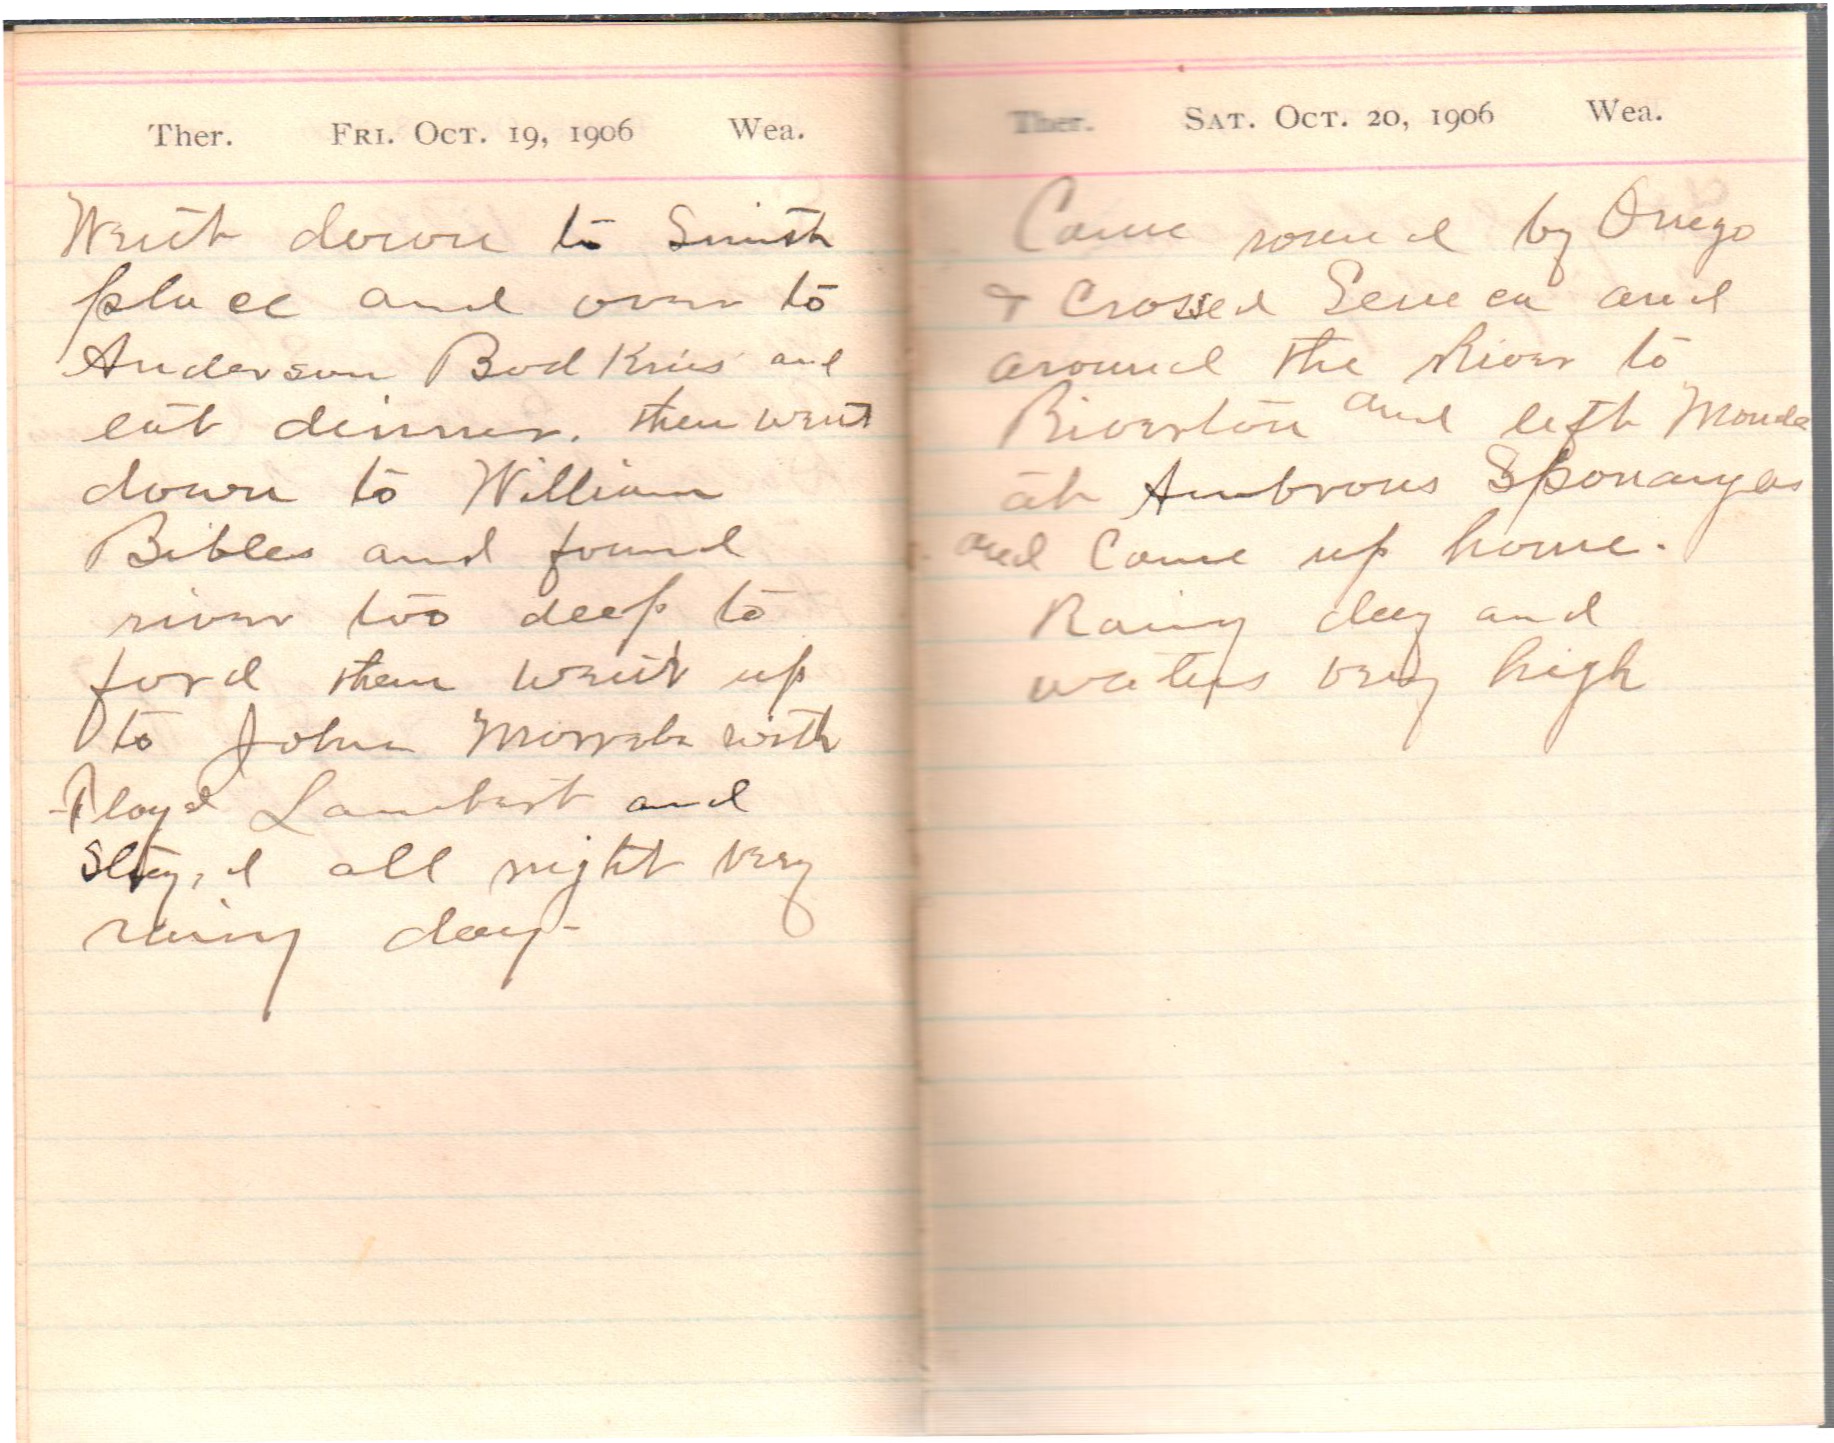 Ther. Fri. Oct. 19, 1906 Wea.
Went down to Smith
place and over to
Anderson Bodkins and
eat dinner. then went
down to William
Bibles and found
river too deep to
ford then went up
to John with
Floyd Lambert and
Stayed all night very
rainy day-
Ther. Sat. Oct. 20, 1906 Wea.
Came round by Onego
& Crossed Seneca and
around the River to
Riverton and left Maude
at Ambrous Sponaugles
and Came up home.
Rainy day and
waters very high